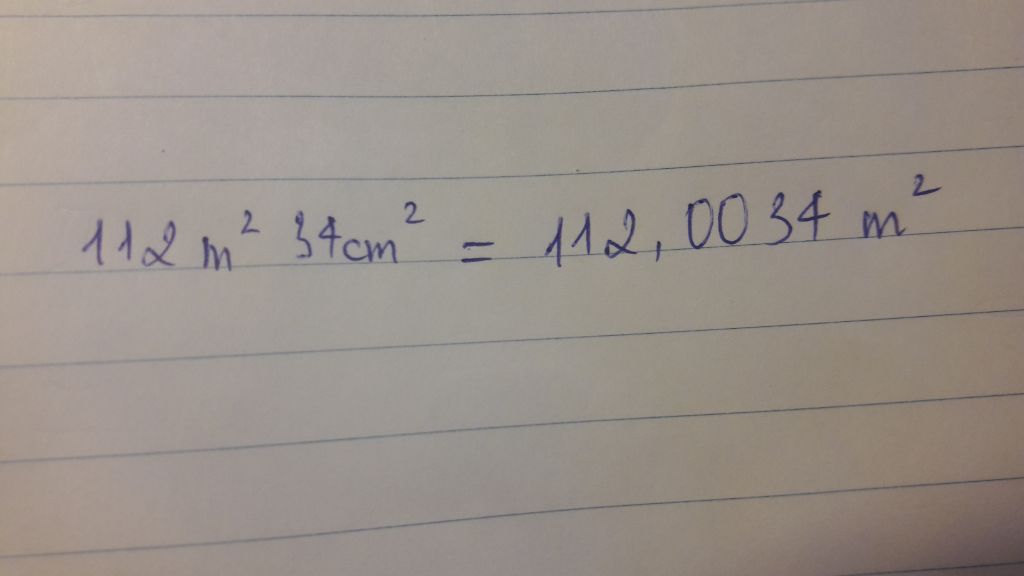 112 m² 34cm² = 112,0034 m²